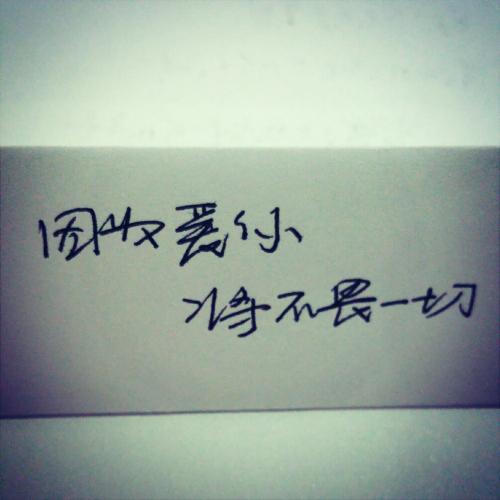 因收爱你
将不畏一切